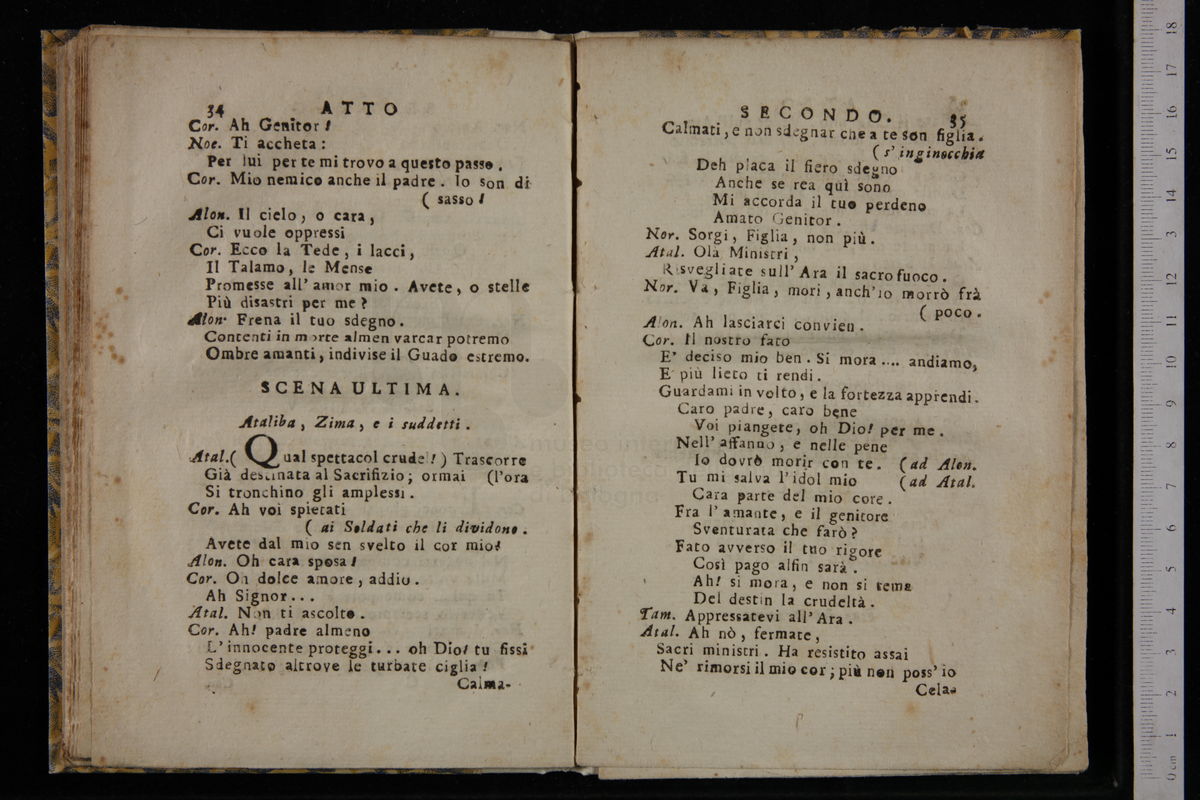 34 ATTO
Cor. Ah Genitor!
Noe. Ti accheta:
Per lui per te mi trovo a questo passo.
Cor. Mio nemico anche il padre. Io son di
( sasso!
Alon. Il cielo, o cara,
Ci vuole oppressi
Cor. Ecco la Tede, i lacci,
Il Talamo, le Mense
Promesse all'amor mio. Avete, o stelle
Più disastri per me?
Alon. Frena il tuo sdegno.
Contenti in morte almen varcar potremo
Ombre amanti, indivise il Guado estremo.
SCENA ULTIMA.
Ataliba, Zima, e i suddetti.
Atal. ( Qual spettacol crudel! ) Trascorre
Già destinata al Sacrifizio; ormai (l'ora
Si tronchino gli amplessi.
Cor. Ah voi spietati
( ai Soldati che li dividono.
Avete dal mio sen svelto il cor mio!
Alon. Oh cara sposa!
Cor. Oh dolce amore, addio.
Ah Signor...
Atal. Non ti ascolto.
Cor. Ah! padre almeno
L'innocente proteggi... oh Dio! tu fissi
Sdegnato altrove le turbate ciglia!
Calma-
SECONDO. 35
Calmati, e non sdegnar che a te son figlia.
( s'inginocchia
Deh placa il fiero sdegno
Anche se rea quì sono
Mi accorda il tuo perdeno
Amato Genitor.
Nor. Sorgi, Figlia, non più.
Atal. Olà Ministri,
Risvegliate sull'Ara il sacro fuoco.
Nor. Va, Figlia, mori, anch'io morrò frà
( poco.
Alon. Ah lasciarci convien.
Cor. Il nostro fato
E' deciso mio ben. Si mora .... andiamo,
E più lieto ti rendi.
Guardami in volto, e la fortezza apprendi.
Caro padre, caro bene
Voi piangete, oh Dio! per me.
Nell'affanno, e nelle pene
Io dovrò morir con te. (ad Alon.
Tu mi salva l'idol mio (ad Atal.
Cara parte del mio core.
Fra l'amante, e il genitore
Sventurata che farò?
Fato avverso il tuo rigore
Così pago alfin sarà.
Ah! si mora, e non si tema
Del destin la crudeltà.
Tam. Appressatevi all'Ara.
Atal. Ah nò, fermate,
Sacri ministri. Ha resistito assai
Ne' rimorsi il mio cor; più non poss'io
Cela-